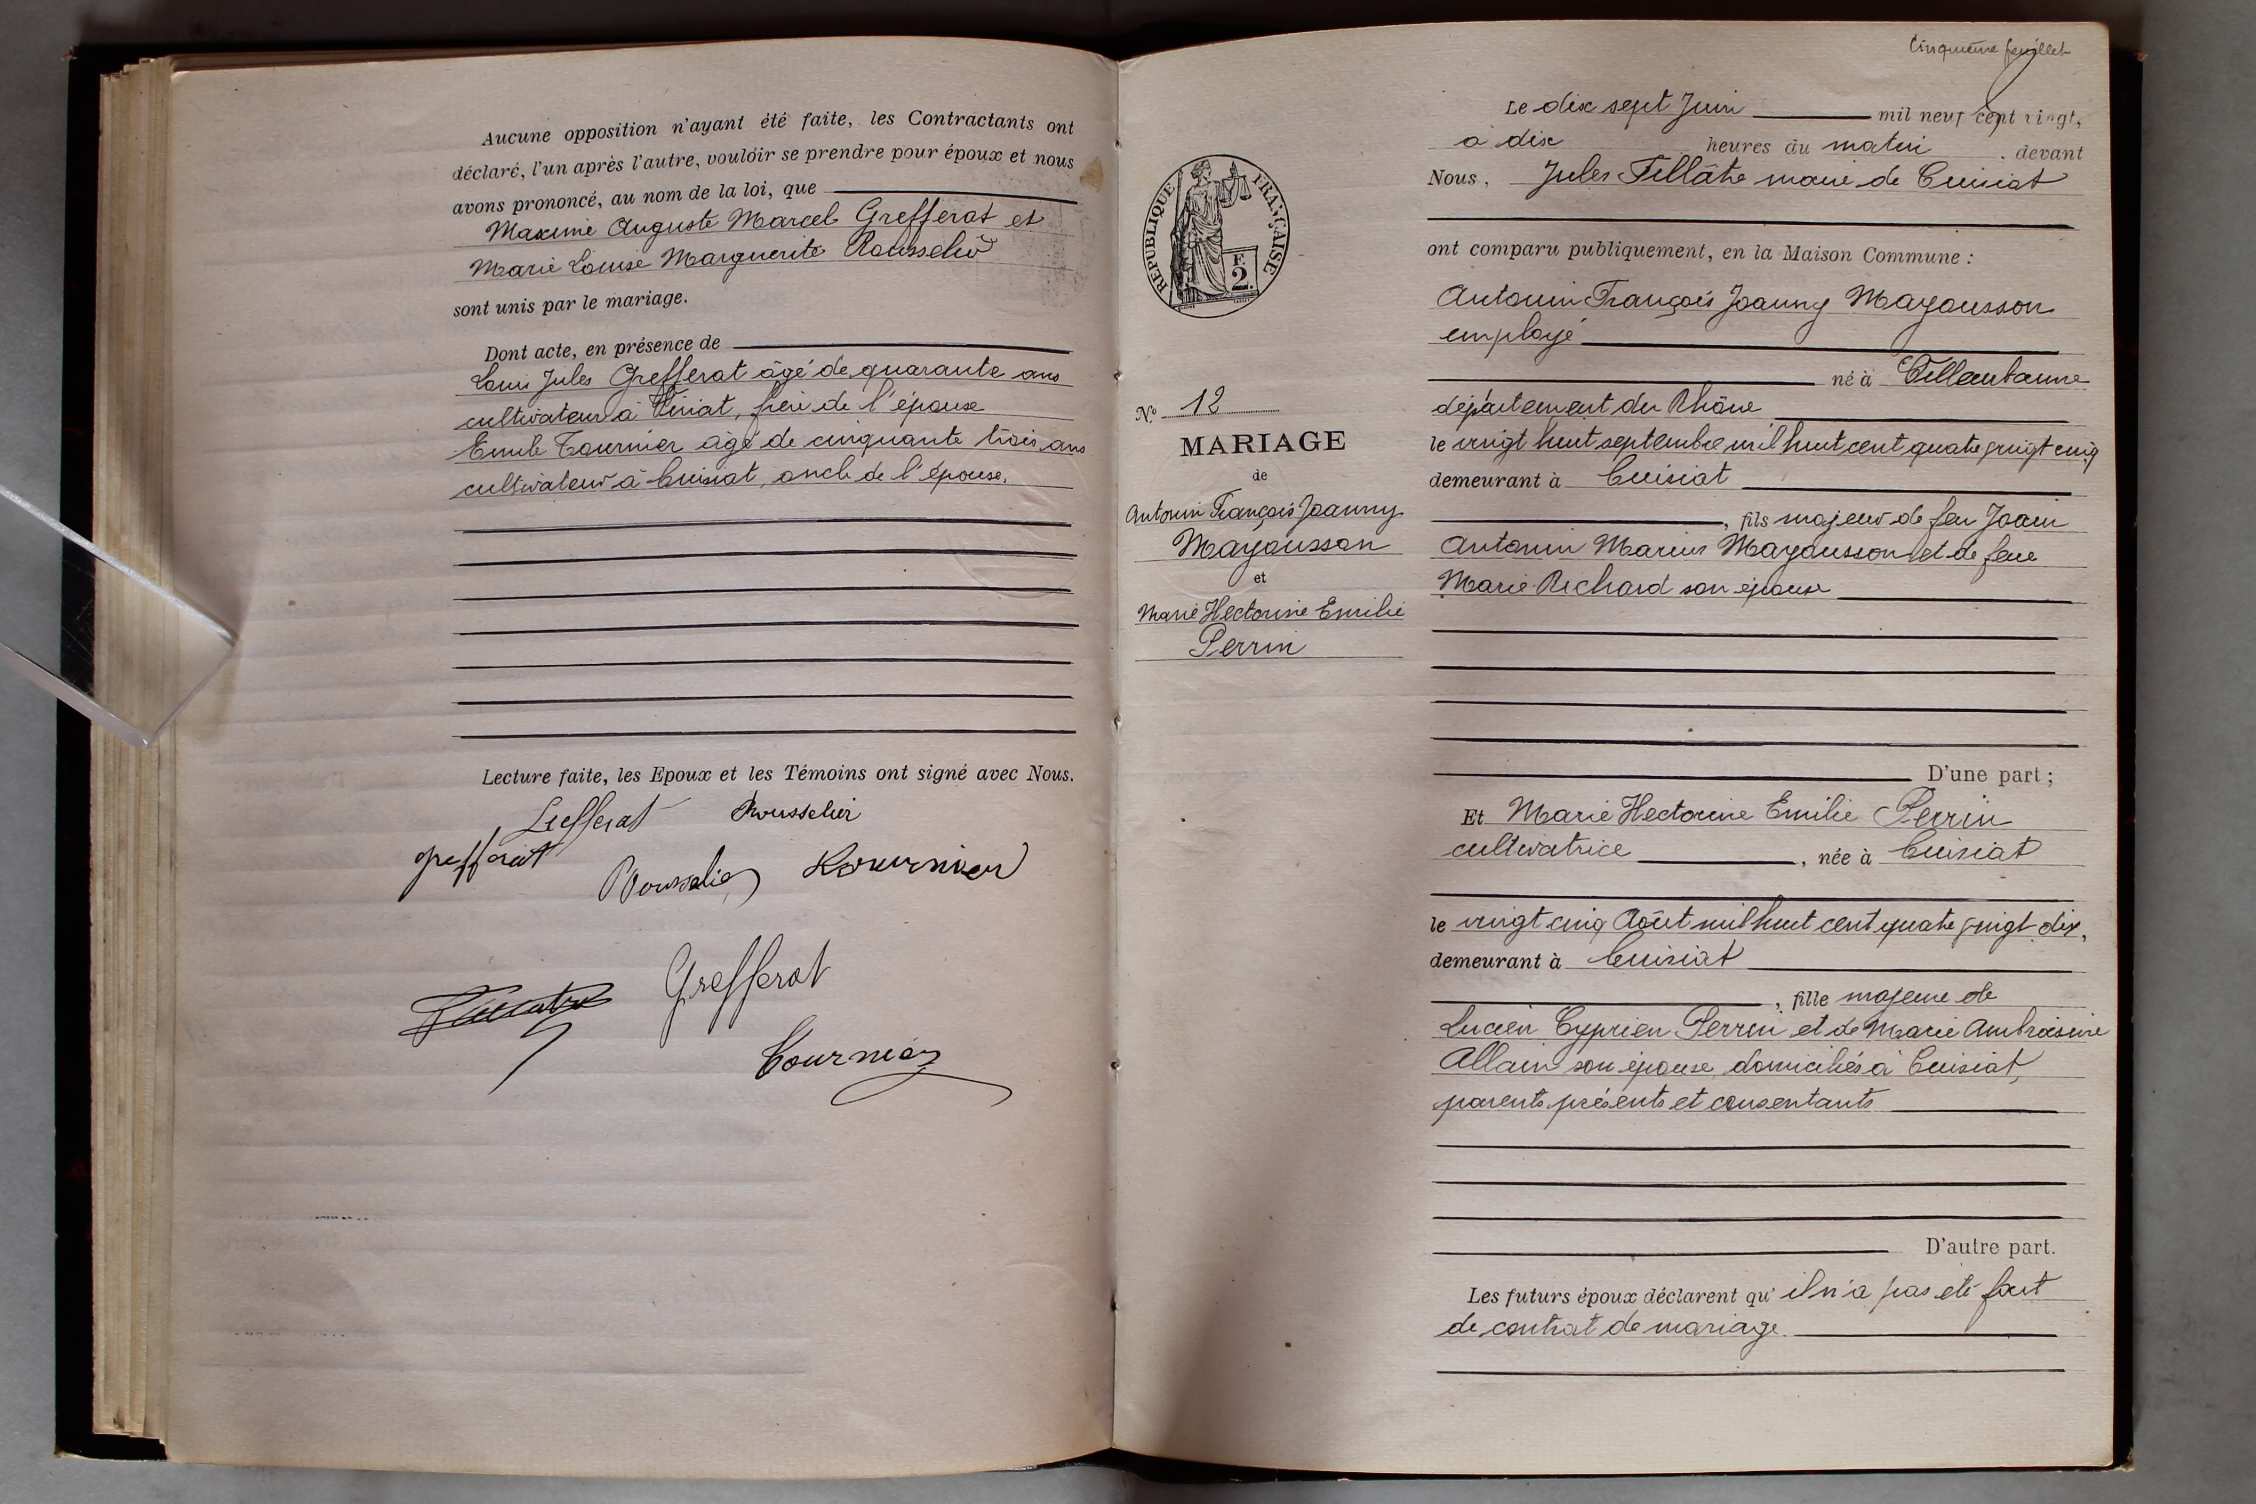 Aucune opposition n'ayant été faite, les Contractants ont
déclaré, l'un après l'autre, vouloir se prendre pour époux et nous
avons prononcé, au nom de la loi, que
Maxime Auguste Marcel Grefferat et
Marie Louise Marguerite Rousselier
sont unis par le mariage.
Dont acte, en présence de
Louis Jules Grefferat âgé de quarante ans
cultivateur à Viriat, frère de l'épouse
Emile Tournier âgé de cinquante trois ans
cultivateur à Cuisiat, oncle de l'épouse.
Lecture faite, les Epoux et les Témoins ont signé avec Nous.
Grefferat Rousselier
Grefferat
Rousselier Tournier
Grefferat
Tournier
Cinquième feuillet
RÉPUBLIQUE FRANÇAISE
F.
2.
N° 12
MARIAGE
de
Antonin François Joanny
Mayousson
et
Marie Hectorine Emilie
Perrin
Le dix sept Juin mil neuf cent vingt,
à dix heures du matin, devant
Nous, Jules Tillâtre maire de Cuisiat
ont comparu publiquement, en la Maison Commune :
Antonin François Joanny Mayousson
employé
né à Villeurbanne
département du Rhône
le vingt huit septembre mil huit cent quatre vingt cinq
demeurant à Cuisiat
, fils majeur de feu Joain
Antonin Marius Mayousson et de feue
Marie Richard son épouse
D'une part ;
Et Marie Hectorine Emilie Perrin
cultivatrice, née à Cuisiat
le vingt cinq Août mil huit cent quatre vingt dix,
demeurant à Cuisiat
, fille majeure de
Lucien Cyprien Perrin et de Marie Ambroisine
Allain son épouse, domiciliés à Cuisiat,
parents présents et consentants
D'autre part.
Les futurs époux déclarent qu'il n'a pas été fait
de contrat de mariage.